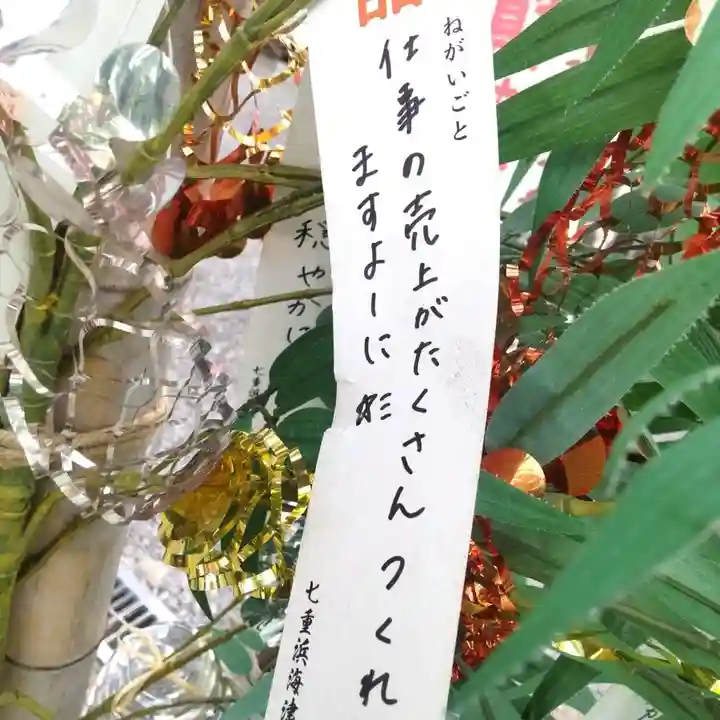 ねがいごと
仕事の売上がたくさんつくれ
ますよーに 彩
七重浜海津
穏やかに